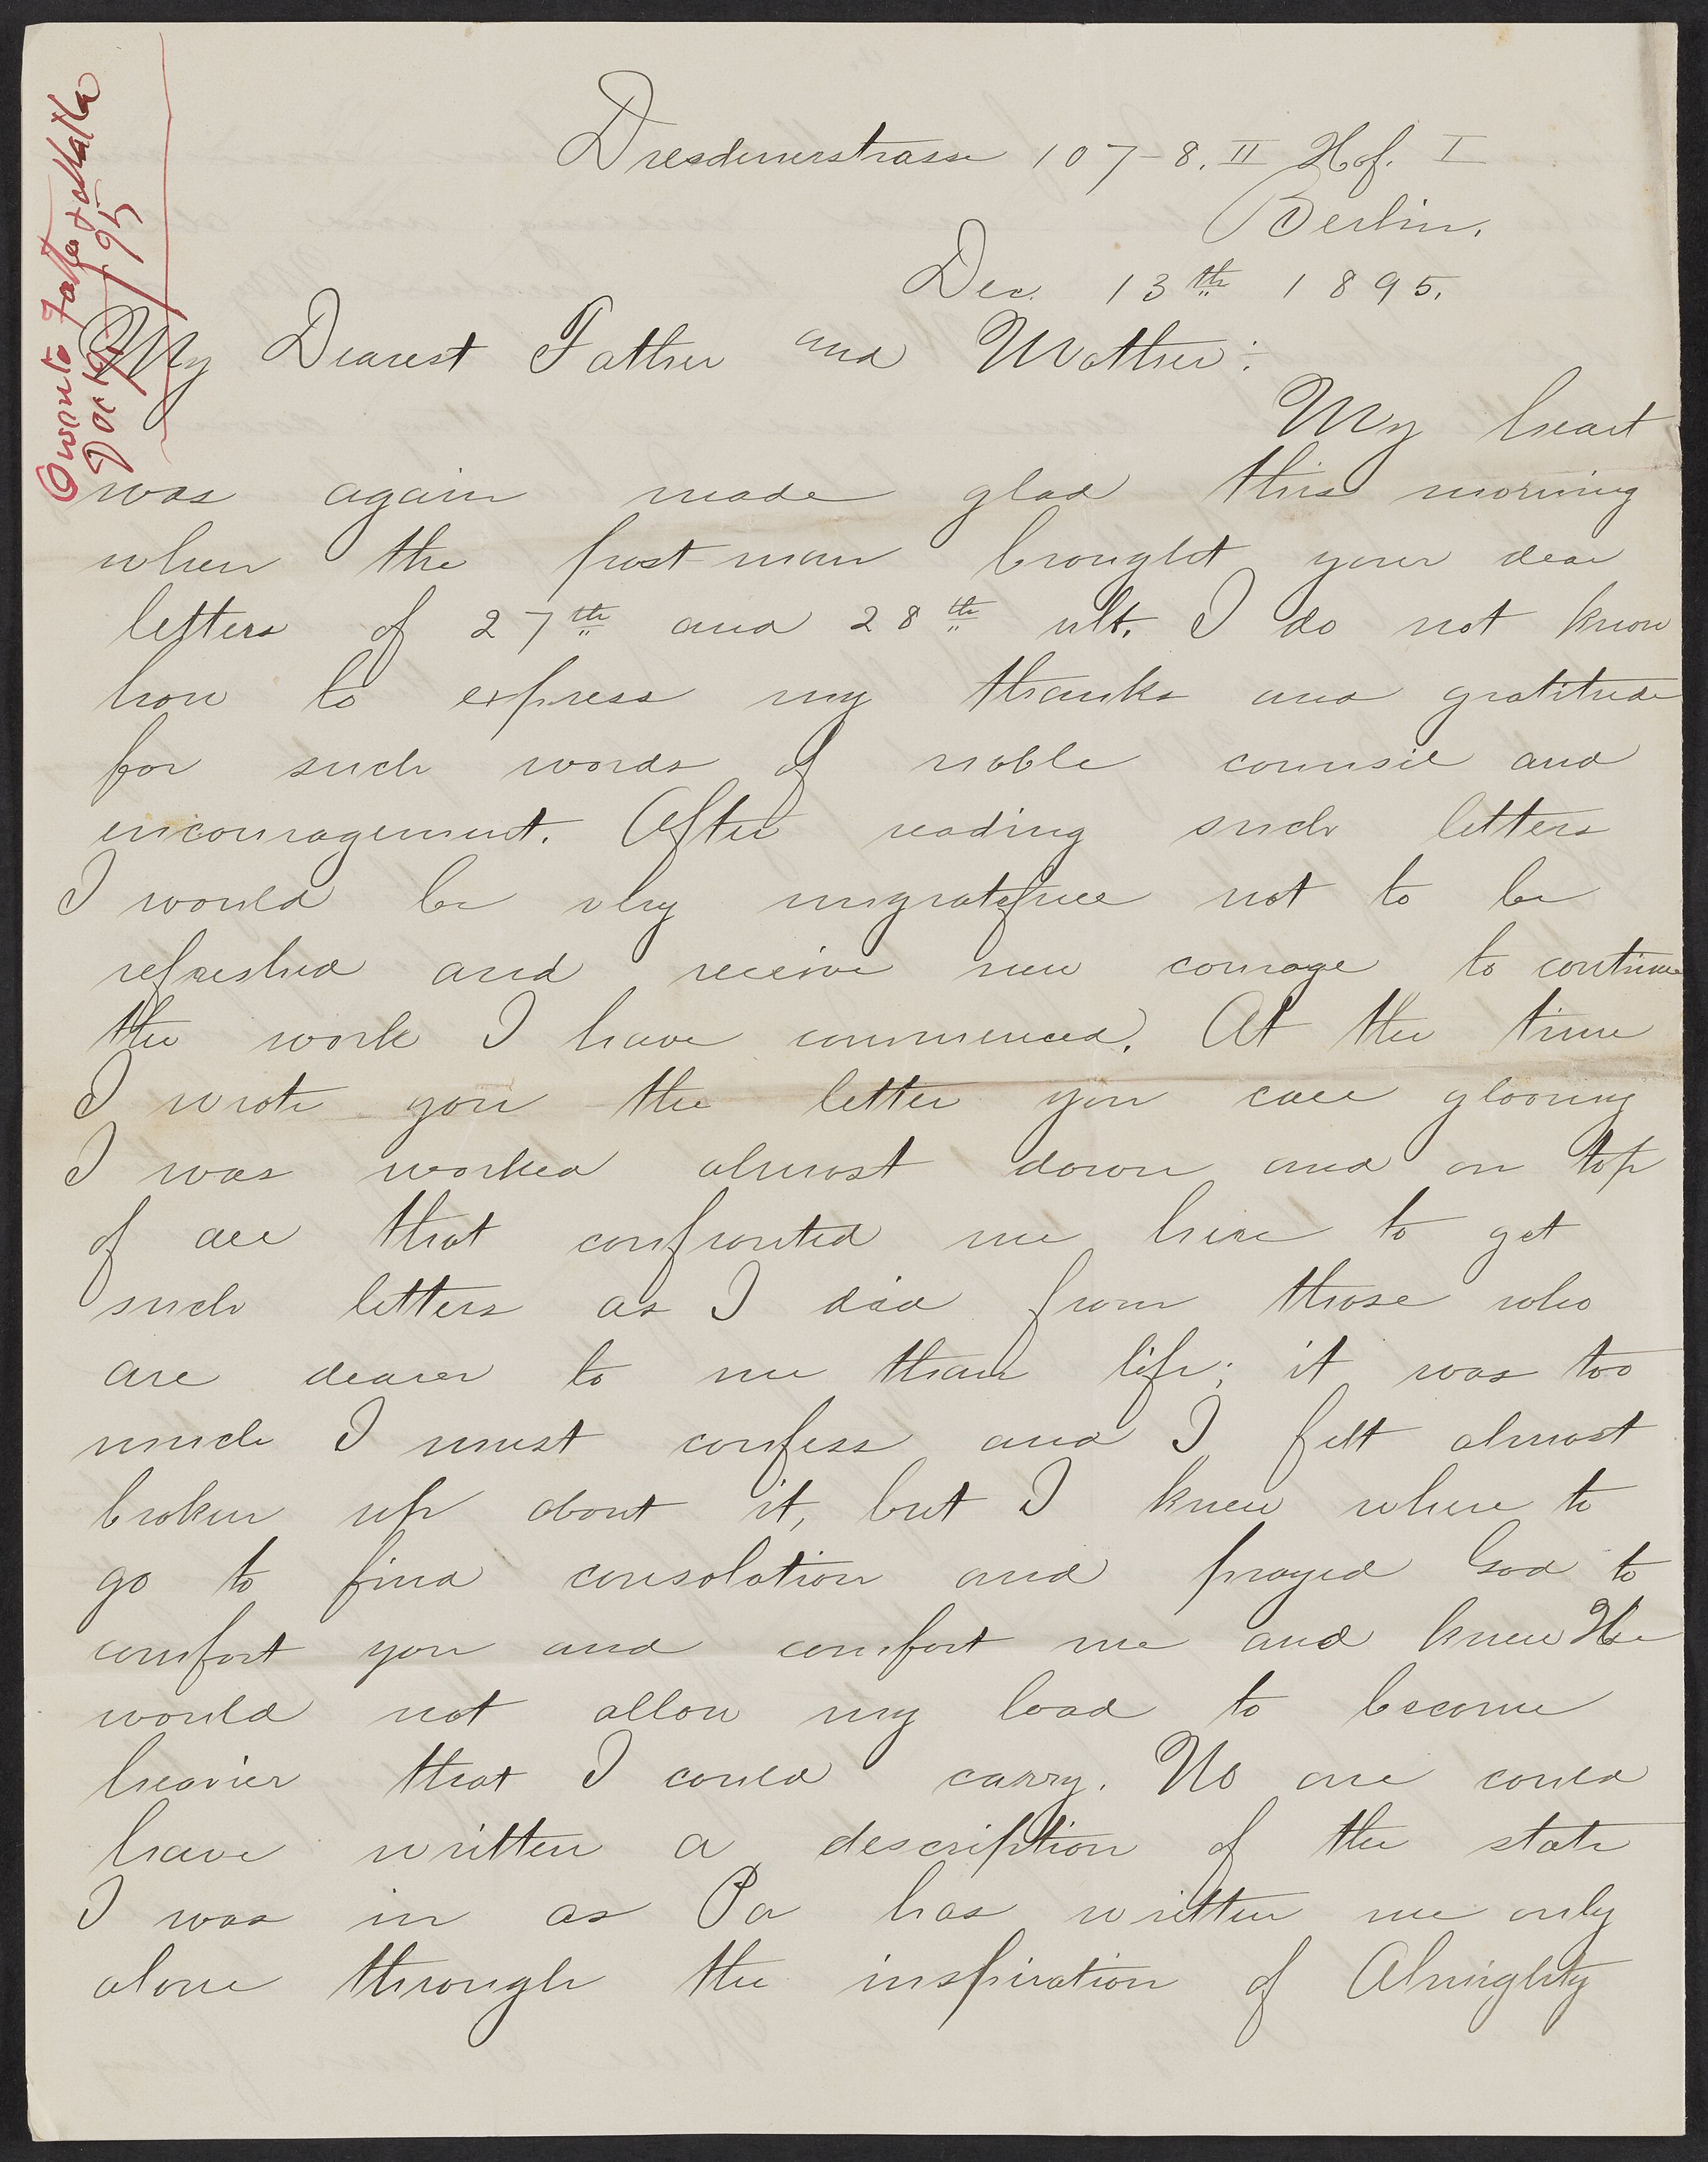 Owen to Father & Mother
Dec 13/95
Dresdenerstrasse 107-8. II Hof. I
Berlin.
Dec. 13th 1895.
My Dearest Father and Mother:
My heart
was again made glad this morning
when the post-man brought your dear
letters of 27th and 28th ult. I do not know
how to express my thanks and gratitude
for such words of noble counsil and
encouragement. After reading such letters
I would be very ungrateful not to be
refreshed and receive new courage to continue
the work I have commenced. At the time
I wrote you the letter you call gloomy
I was worked almost down and on top
of all that confronted me here to get
such letters as I did from those who
are dearer to me than life; it was too
much I must confess and I felt almost
broken up about it, but I knew where to
go to find consolation and prayed God to
comfort you and comfort me and knew He
would not allow my load to become
heavier that I could carry. No one could
have written a description of the state
I was in as Pa has written me only
alone through the inspiration of Almighty